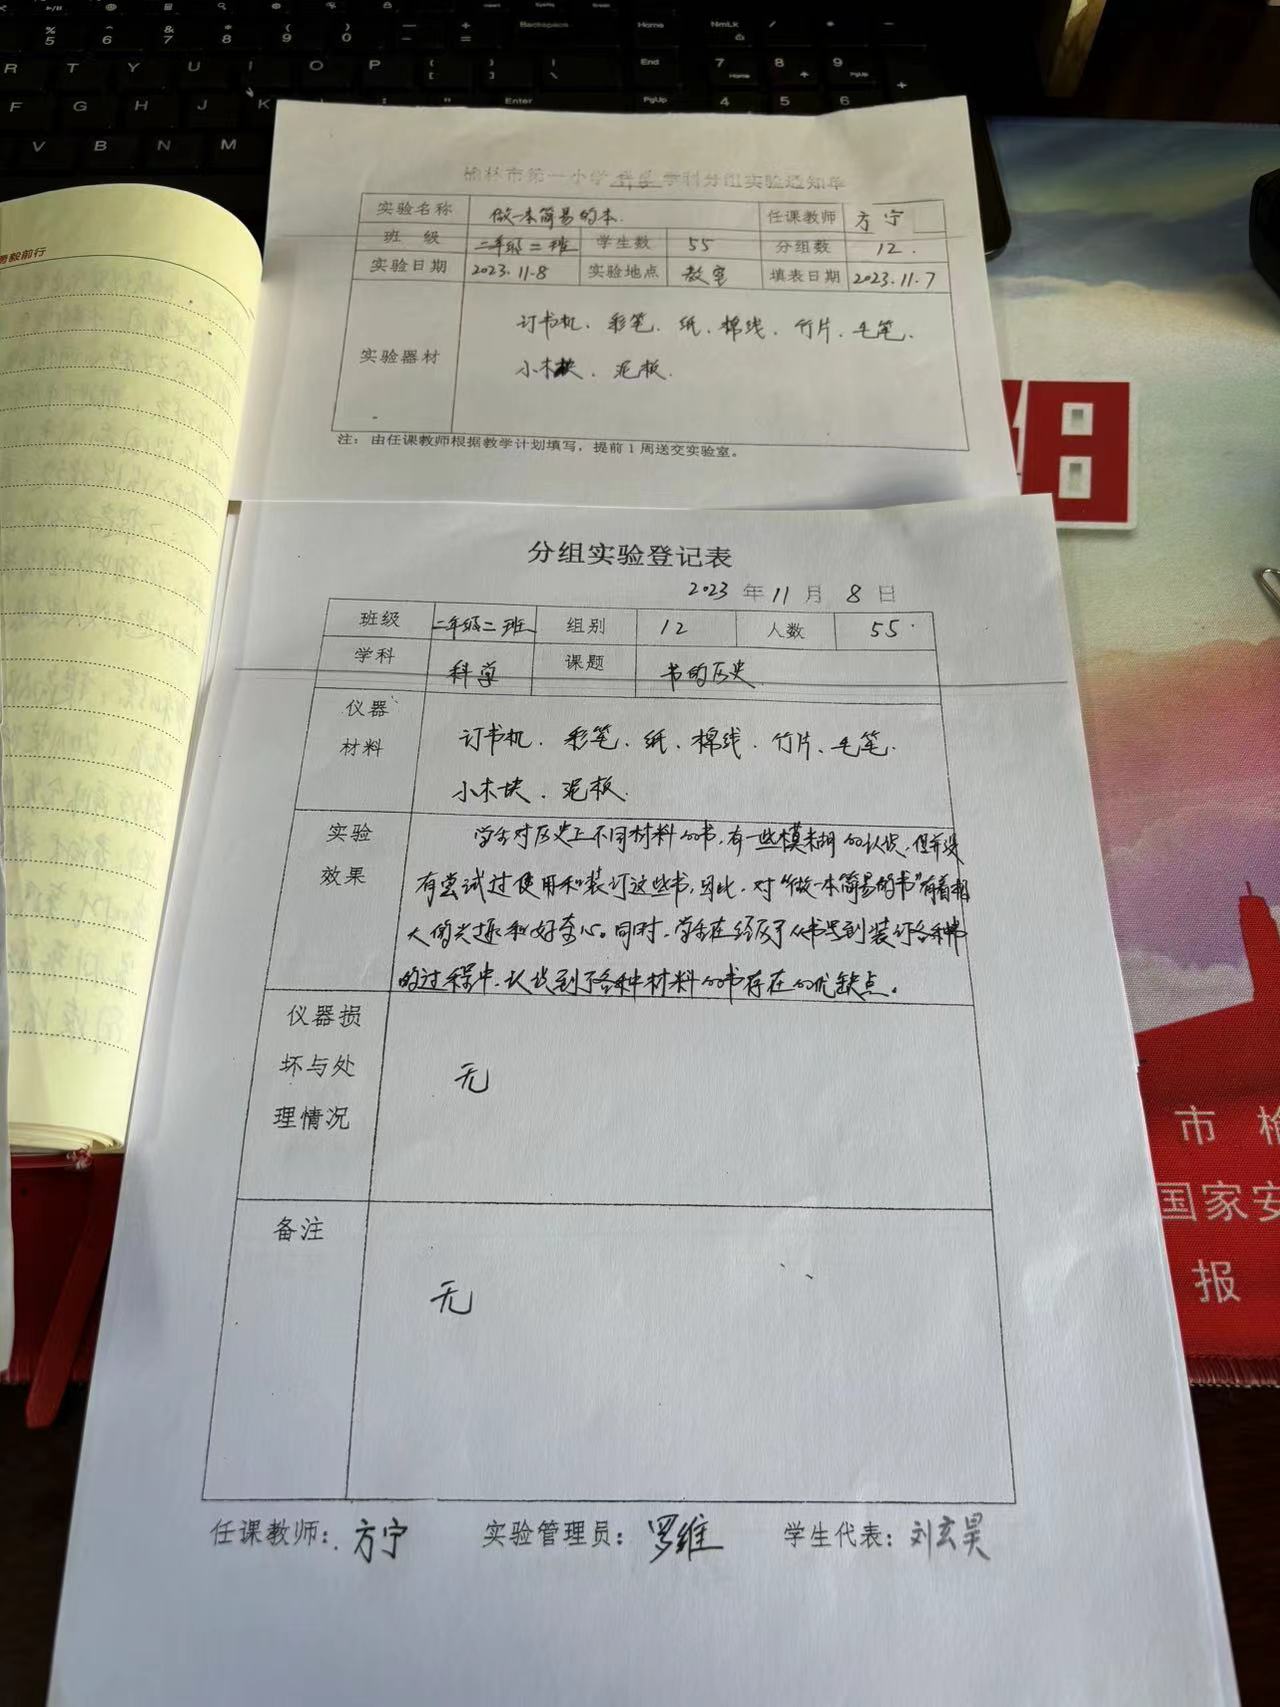 榆林市第一小学 科学 学科分组实验通知单
实验名称 做一本简易的本. 任课教师 方宁
班 级 二年级二班 学生数 55 分组数 12.
实验日期 2023.11.8 实验地点 教室 填表日期 2023.11.7
实验器材 订书机、彩笔、纸、棉线、竹片、毛笔、
小木块、泥板.
注：由任课教师根据教学计划填写，提前1周送交实验室。
分组实验登记表
2023 年 11 月 8 日
班级 二年级二班 组别 12 人数 55
学科 科学 课题 书的历史
仪器材料 订书机、彩笔、纸、棉线、竹片、毛笔、
小木块、泥板.
实验效果 学生对历史上不同材料的书，有一些模糊的认识，但并没
有尝试过使用和装订这些书，因此，对“做一本简易的书”有着极
大的兴趣和好奇心。同时，学生在经历了从书写到装订各种书
的过程中，认识到了各种材料的书存在的优缺点。
仪器损坏与处理情况 无
备注 无
任课教师：方宁 实验管理员：罗维 学生代表：刘玄昊
勇毅前行
市 榆
国家安
报
R T Y U I O P
F G H J K
V B N M
Enter
Backspace
Home
End
PgUp
NmLk
7 8 9
4 5 6
Home PgUp
5 6 7 8 9 0